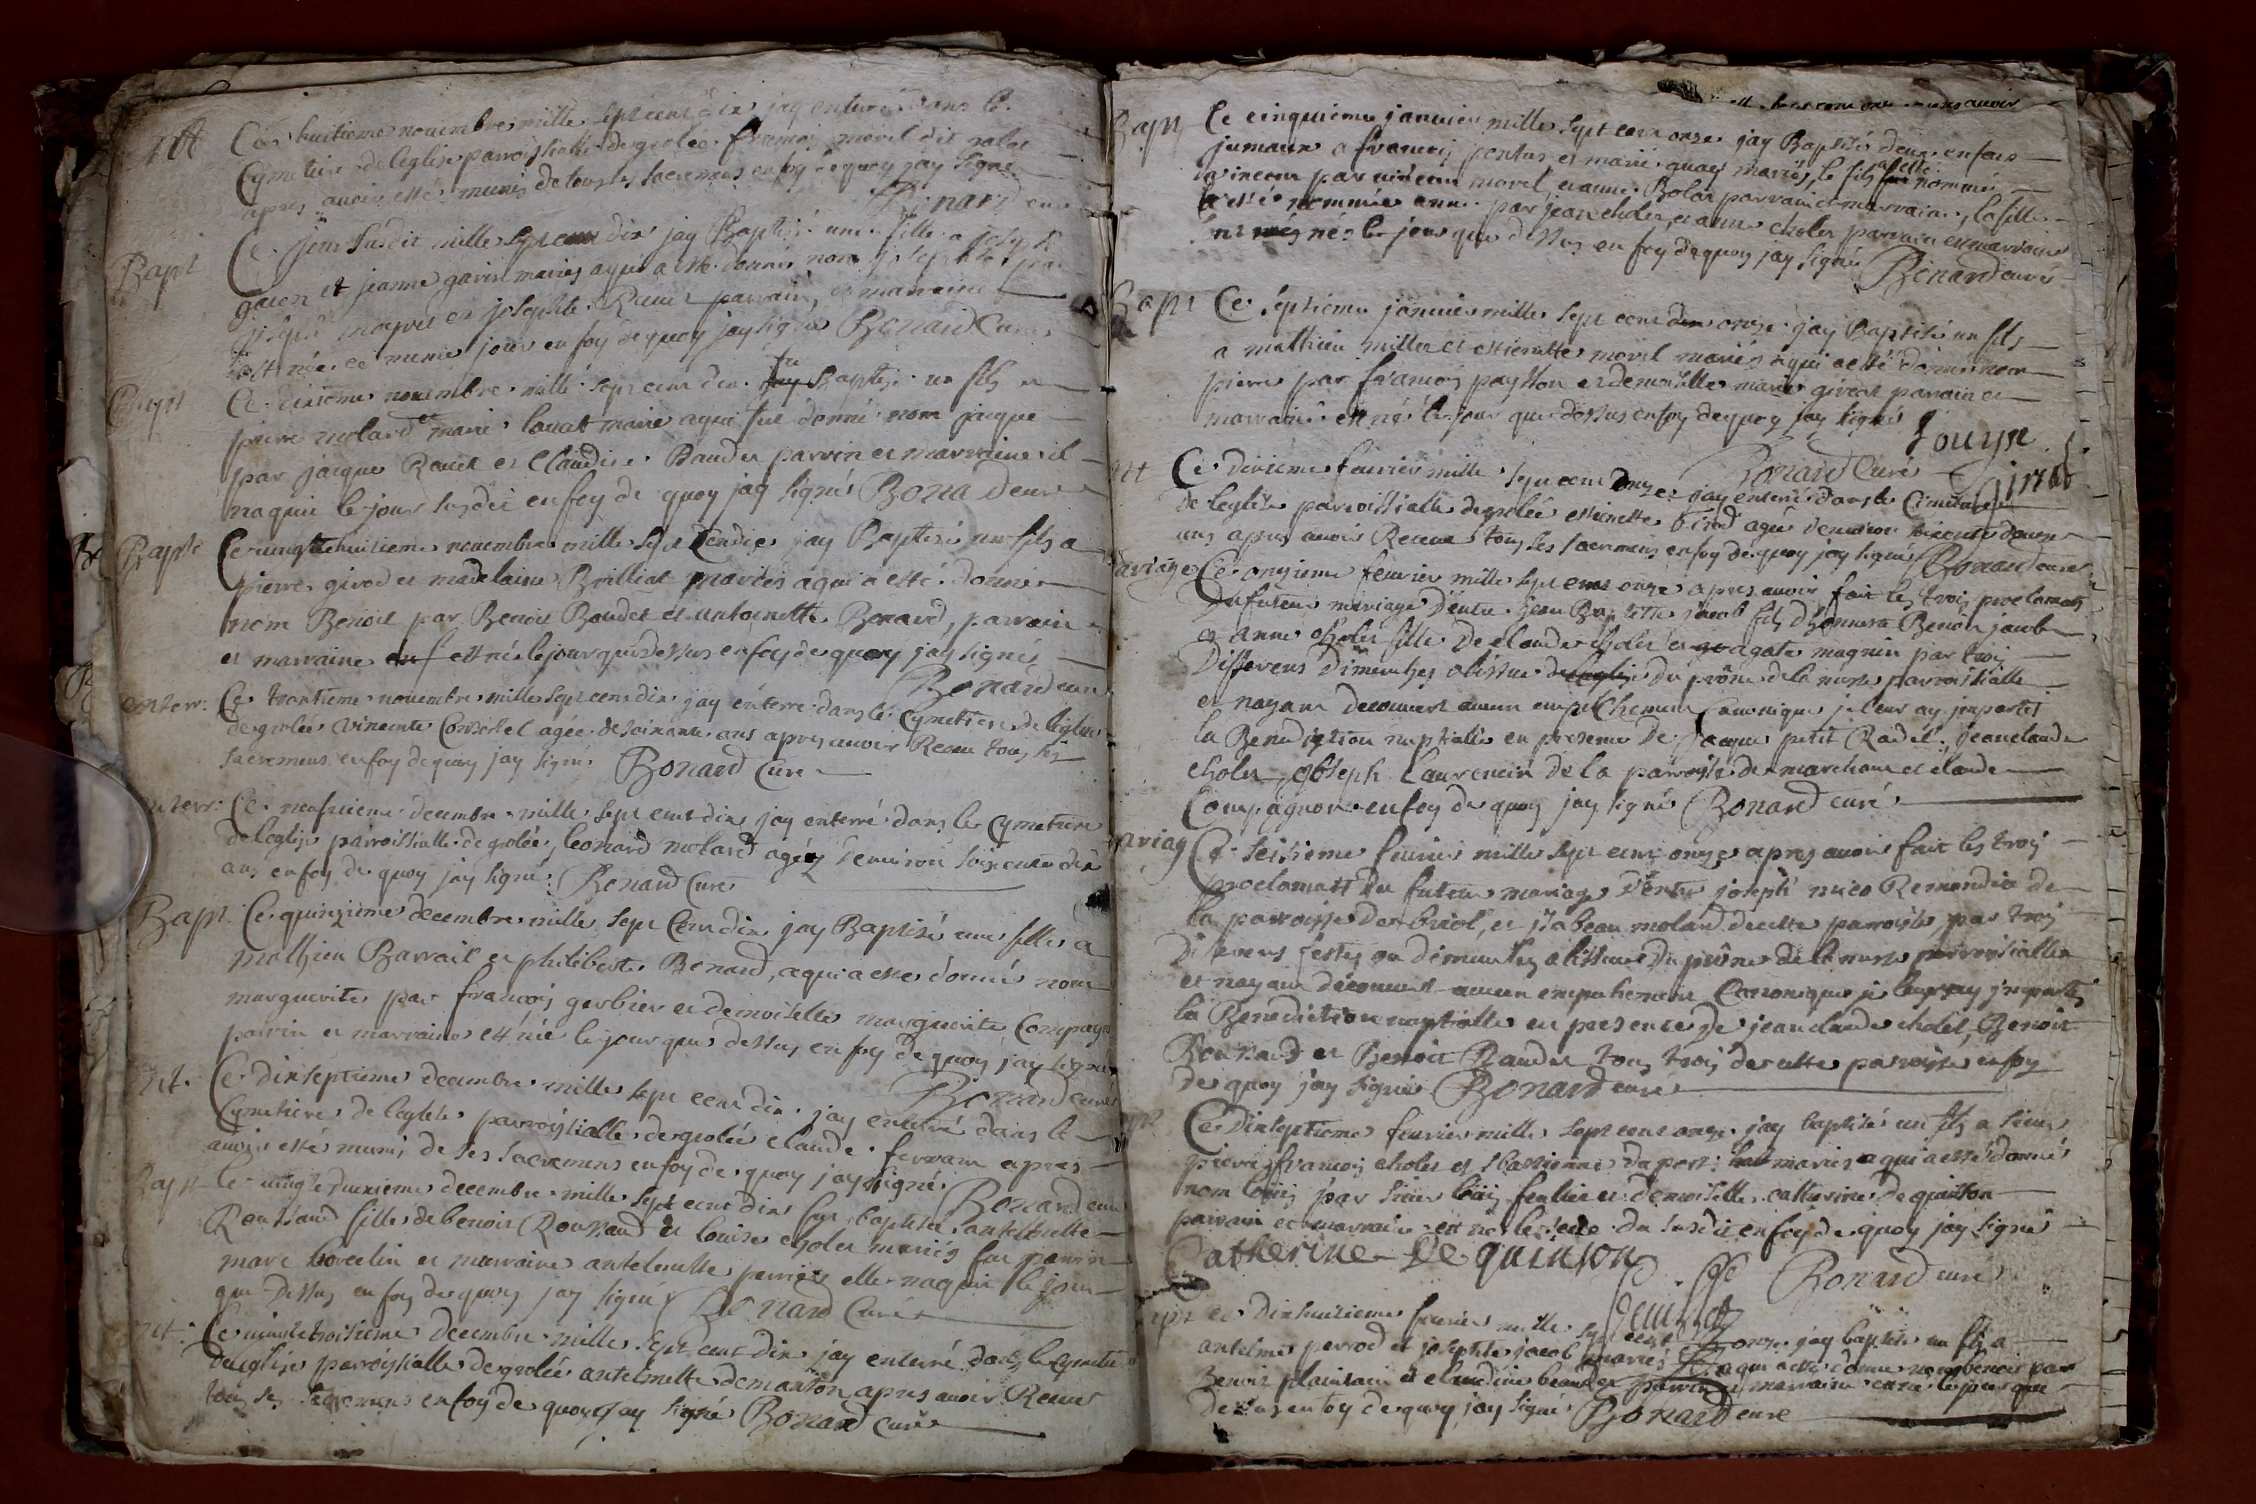 Ce huitieme novembre mille sept cent dix jay enterré dans le
Cymetiere de leglise parroissialle de grolée françois morel dit
apres avoir esté munis de tous les sacremens en foy de quoy jay signé
Bonard curé
Bapt Ce jour susdit mille sept cent dix jay Baptisé une fille a joseph
et jeanne garin mariés a qui a esté donné nom josephte par
joseph et josephte parrain, et marraine
est née ce meme jour en foy de quoy jay signé Bonard Curé
Bapt Ce dixieme novembre mille sept cent dix fu Baptisé un fils a
pierre molard et marie lovat marié a qui fut donné nom jacque
par jacque Revet et Claudine Baudet parrin et marraine il
naquit le jour susdit en foy de quoy jay signé Bonard curé
Bapte Ce vingthuitieme novembre mille sept cendix jay Baptisé un fils a
pierre girod et madelaine Brilliat mariés a qui a esté donné
nom Benoit par Benoit Baudet et antoinette Bonard, parrain
et marraine est né le jour que dessus en foy de quoy jay signé
Bonard curé
enterr. Ce trantieme novembre mille sept cens dix jay enterré dans le Cymetiere de leglise
de grolée vincente agée de soixante ans apres avoir Receu tous les
sacremens en foy de quoy jay signé Bonard Curé
enterr. Ce neufvieme decembre mille sept cent dix jay enterré dans le Cymetiere
de leglise parroissialle de grolée, leonard molard agé denviron soixente dix
ans en foy de quoy jay signé Bonard Curé
Bapt. Ce quinzieme decembre mille sept Cent dix jay Baptisé une fille a
mathieu Barrail et philiberte Bonard, a qui a esté donné nom
marguerite par françois gerbier et demoiselle marguerite Compagn
parrin et marraine est née le jour que dessus en foy de quoy jay signé
Bonard curé
Ce dixseptieme decembre mille sept cent dix jay enterré dans le
Cymetiere de leglise parroissialle de grolée claude ferrain apres
avoir esté munis de ses sacremens en foy de quoy jay signé
Bonard curé
Bapt le vingt deuxieme decembre mille sept cent dix fut baptisée antelmette
Roussaud fille de benoit Roussaud et louise cholet mariés fut parrin
marc borcelin et marraine antelmette perrier elle naquit le jour
que dessus en foy de quoy jay signé Bonard Curé
Ce vingt troisieme decembre mille sept cent dix jay enterré dans le Cymetiere
de leglise parroissialle de grolée antelmette demarton apres avoir Receu
tous ses sacremens en foy de quoy jay signé Bonard Curé
Bapt Ce cinquieme janvier mille sept cent onze jay Baptisé deux enfans
jumeaux a françois pontus et marie quay mariés, le fils a esté nommé
vincent par vincent morel, et anne Bolat parrain et marraine, la fille
a esté nommée anne par jean cholet, et anne cholet parrain et marraine
nés le jour que dessus en foy de quoy jay signé
Bonard curé
Bapt Ce septieme janvier mille sept cent onze jay Baptisé un fils
a mathieu millet et estiennette morel mariés a qui a esté donné nom
pierre par françois paysson et demoiselle marie girod parrain et
marraine est né le jour que dessus en foy de quoy jay signé
Bonard Curé
Ce dixieme fevrier mille sept cent onze jay enterré dans le Cimetiere
de leglise parroissialle de grolée estienette girod agée denviron soixente
ans apres avoir Receu tous les sacremens en foy de quoy jay signé Bonard curé
mariage Ce onzieme fevrier mille sept cent onze apres avoir fait les trois proclamat
du futur mariage d'entre jean Baptiste jacob fils d'honnera Benoit jacob
et anne cholet fille de claude cholet et agate magnin par trois
differens dimenches a lissue du prône de la messe parroissialle
et nayant decouvert aucun empechement Canonique je leur ay imparti
la Benediction nuptialle en presence de jacque petit Radet, jean claude
cholet, joseph laurencin de la parroisse de marchant et claude
Compagnon en foy de quoy jay signé Bonard curé
Mariag Ce seizieme fevrier mille sept cent onze apres avoir fait les trois
proclamatt du futur mariage d'entre joseph nico Remondin de
la parroisse de briol, et isabeau molard de cette parroisse, par trois
divers festes ou dimenches a lissue du prône de la messe parroissialle
et nayant découvert aucun empechement Canonique je leur ay imparti
la Benediction nuptialle en presence de jean claude cholet, Benoit
Bonard et Benoit Baudet tous trois de cette parroisse en foy
de quoy jay signé Bonard curé
Ce Dixseptieme fevrier mille sept cent onze jay baptisé un fils a sieur
pierre françois cholet et sbastienne duport mariés a qui a esté donné
nom louis par sieur louis feullier et demoiselle catherine de quinson
parrain et marraine est né le seize du susdit en foy de quoy jay signé
Catherine De quinson
Bonard curé
ce dixhuitieme fevrier mille sept cent onze jay baptisé un fils a
antelme perrod et josephte jacob mariés a qui a esté donné nom benoit par
Benoit plaintain et claudine beaudet parrin et marraine est né le jour que
dessus en foy de quoy jay signé Bonard curé